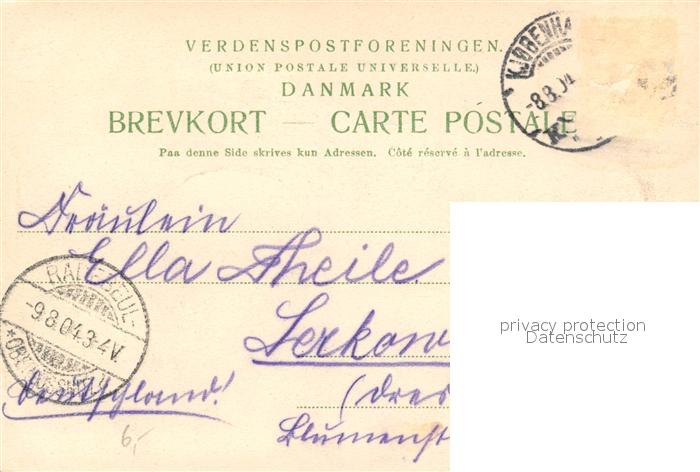 VERDENSPOSTFORENINGEN.
(UNION POSTALE UNIVERSELLE.)
DANMARK
BREVKORT — CARTE POSTALE
Paa denne Side skrives kun Adressen. Côté réservé à l'adresse.
KJØBENHA
-8.8.04
Fräulein
Ella Theile
RADEBEUL-
-9.8.04.3-4V.
Serkow
Deutschland!
(Dres
Blumenst
6,-
privacy protection
Datenschutz